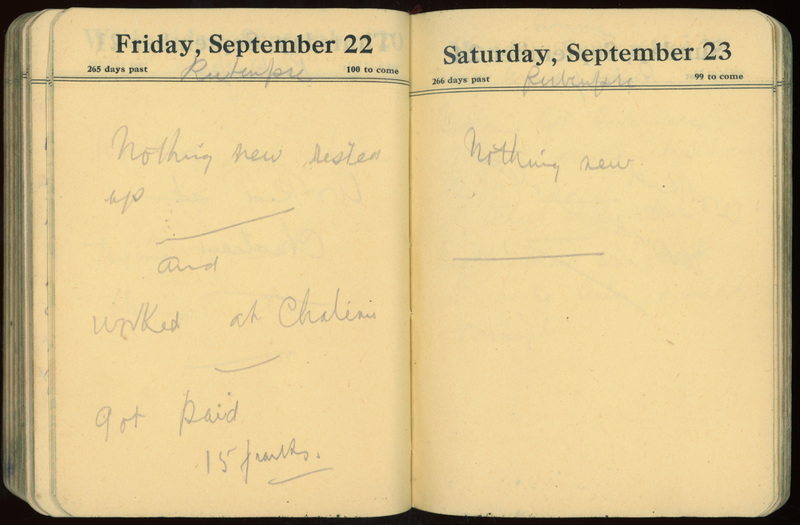 Friday, September 22
265 days past
100 to come
Rubempré
Nothing new rested
up
and
worked at Chaleris
got paid
15 franks.
Saturday, September 23
266 days past
99 to come
Rubempré
Nothing new